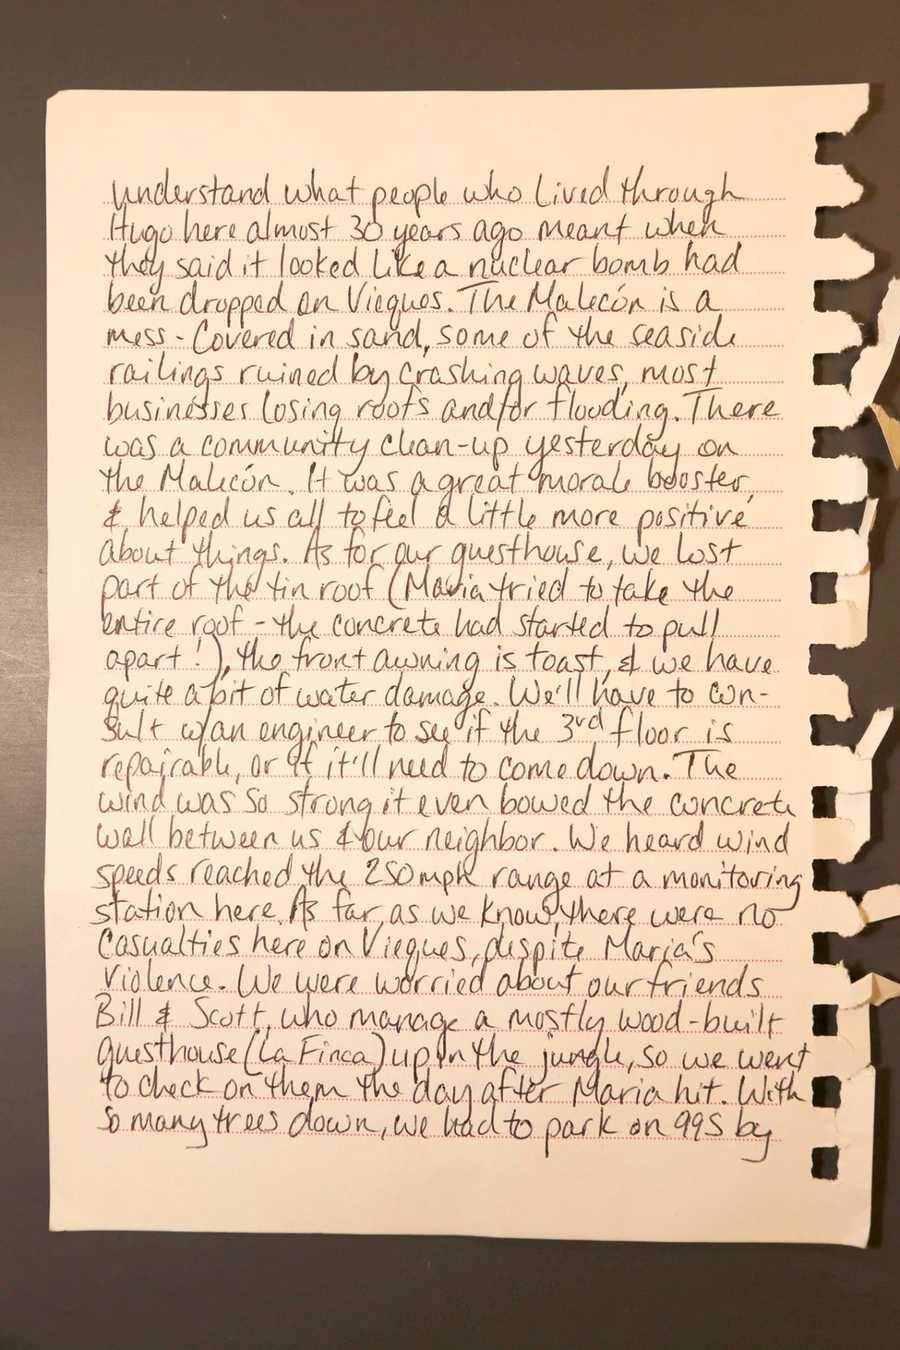 understand what people who lived through
Hugo here almost 30 years ago meant when
they said it looked like a nuclear bomb had
been dropped on Vieques. The Malecón is a
mess - Covered in sand, some of the seaside
railings ruined by crashing waves, most
businesses losing roofs and/or flooding. There
was a community clean-up yesterday on
the Malecón. It was a great morale booster,
& helped us all to feel a little more positive
about things. As for our guesthouse, we lost
part of the tin roof (Maria tried to take the
entire roof - the concrete had started to pull
apart!), the front awning is toast, & we have
quite a bit of water damage. We'll have to con-
sult w/an engineer to see if the 3rd floor is
repairable, or if it'll need to come down. The
wind was so strong it even bowed the concrete
wall between us & our neighbor. We heard wind
speeds reached the 250mph range at a monitoring
station here. As far as we know, there were no
casualties here on Vieques, despite Maria's
violence. We were worried about our friends
Bill & Scott, who manage a mostly wood-built
guesthouse (La Finca) up in the jungle, so we went
to check on them the day after Maria hit. With
so many trees down, we had to park on 995 by